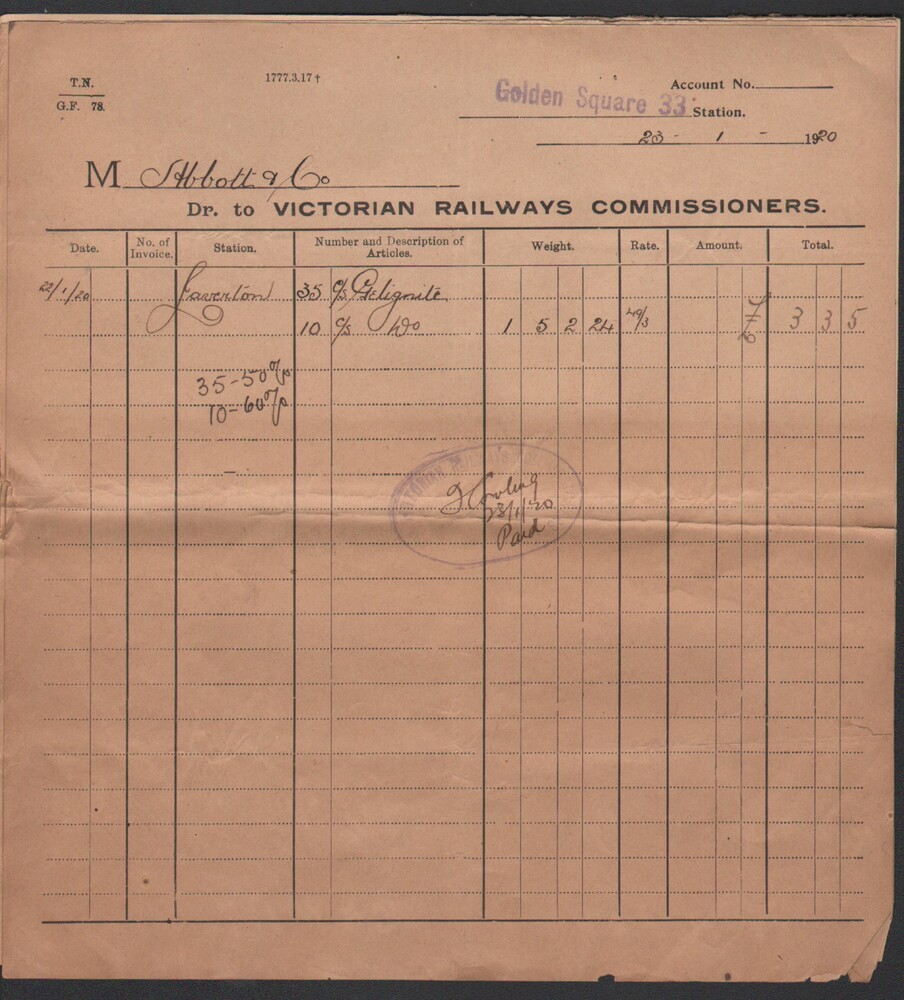 T.N.
G.F. 78.
1777.3.17†
Account No.
Golden Square 33 Station.
23 - 1 - 1920
M Abbott & Co
Dr. to VICTORIAN RAILWAYS COMMISSIONERS.
Date. No. of Invoice. Station. Number and Description of Articles. Weight. Rate. Amount. Total.
22/1/20 Laverton 35 c/s Gelignite
10 c/s Do 1 5 2 24 49/3 3 3 5
35-50%
10-60%
23/1/20
Paid